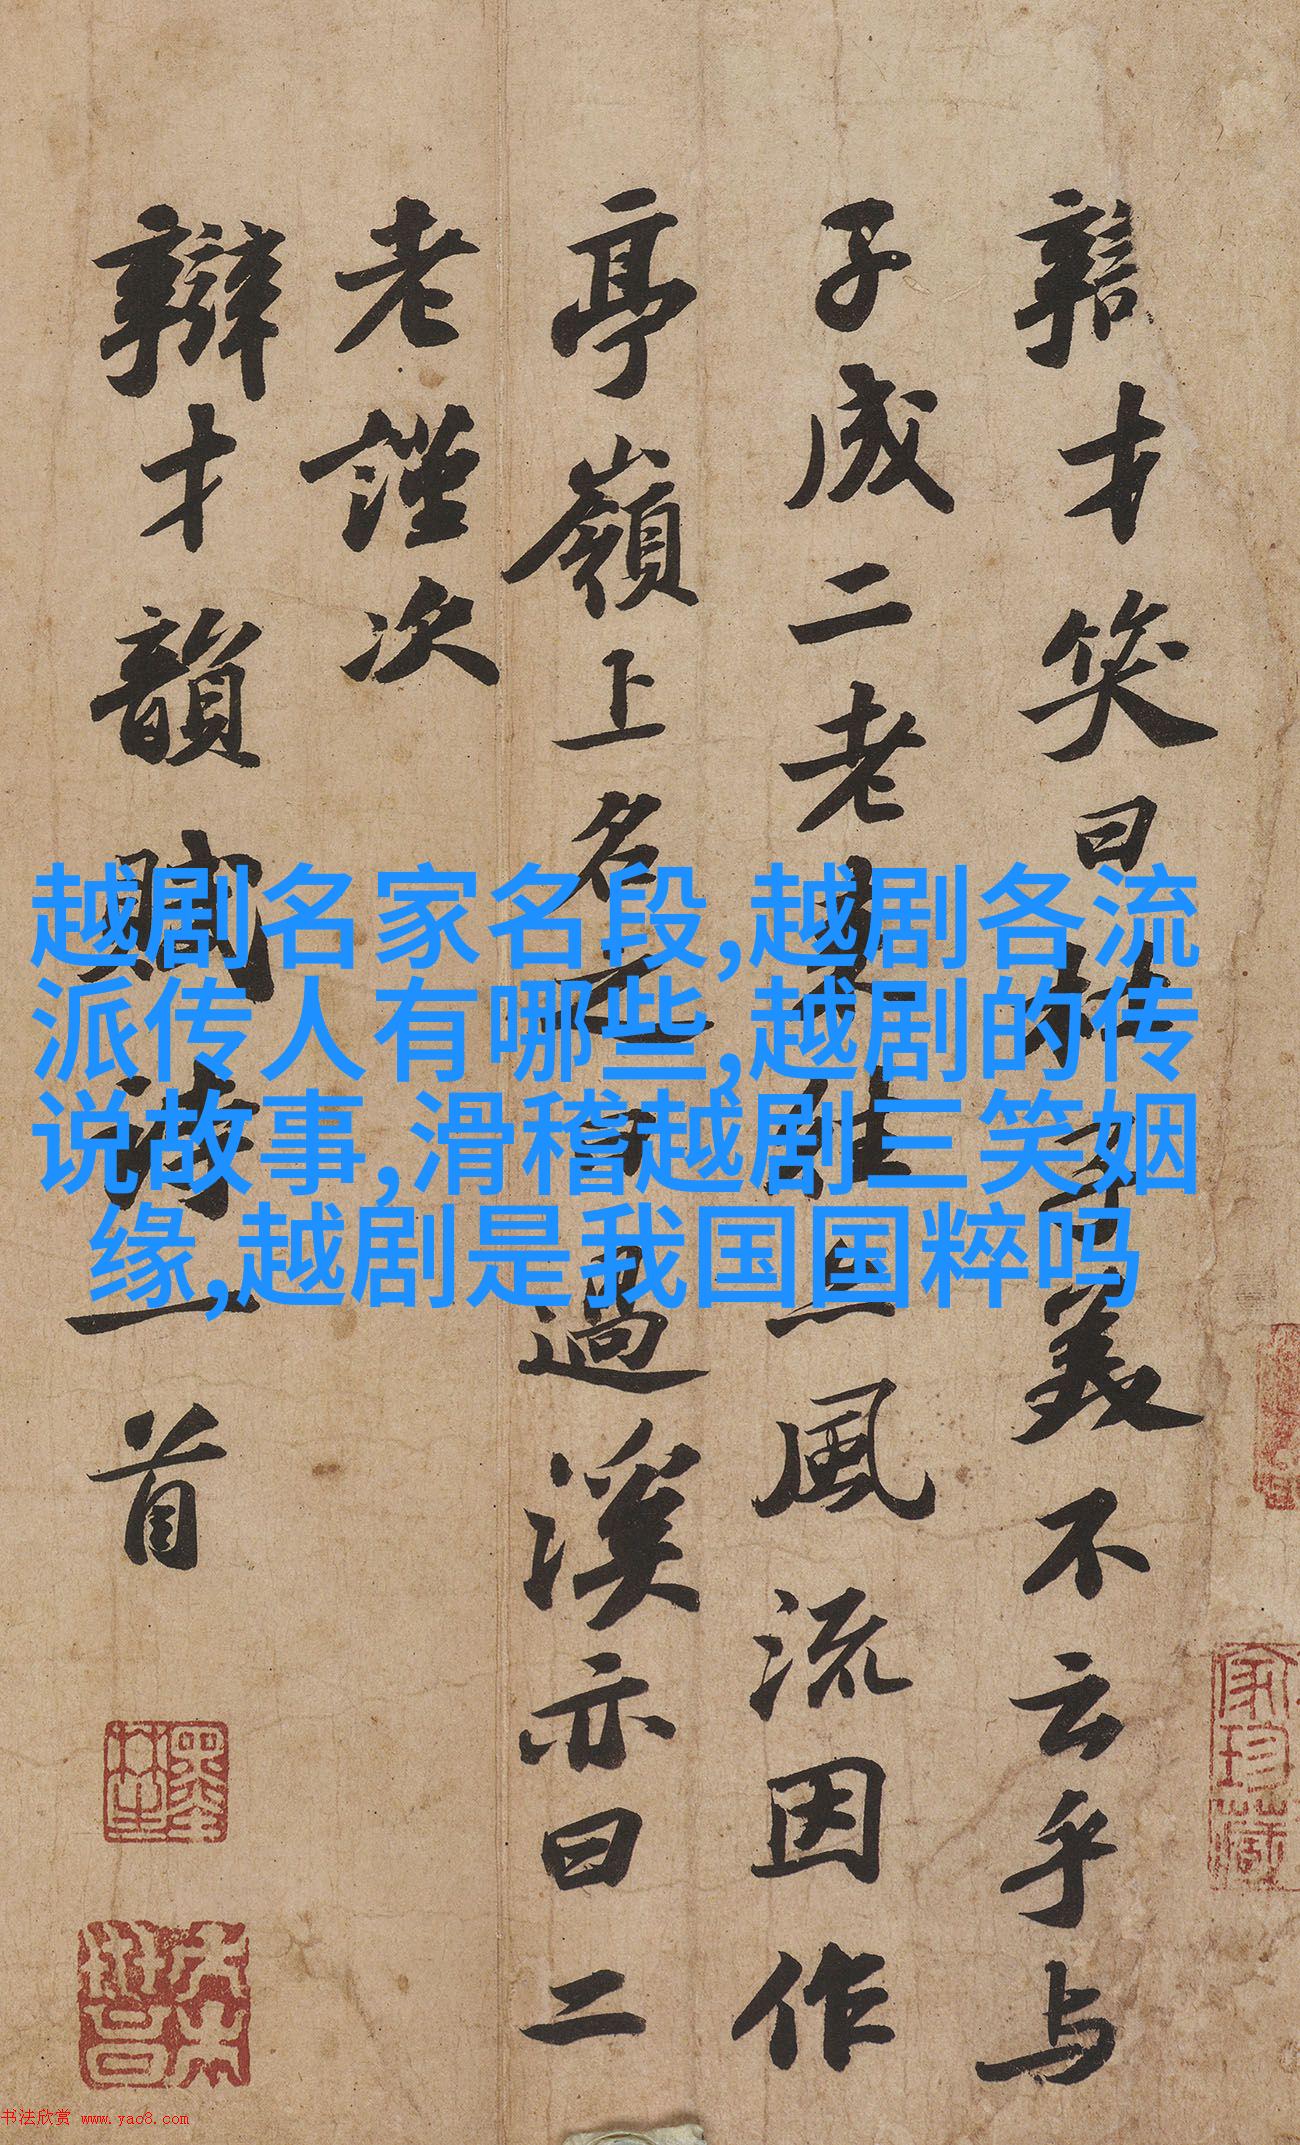 辯才笑曰杜子美不云乎与
子成二老來往亦風流因作
亭嶺上名之曰過溪亦曰二
老謹次
辯才韻賦詩一首
越剧名家名段,越剧各流
派传人有哪些,越剧的传
说故事,滑稽越剧三笑姻
缘,越剧是我国国粹吗
家珍藏
书法欣赏 www.yac8.com